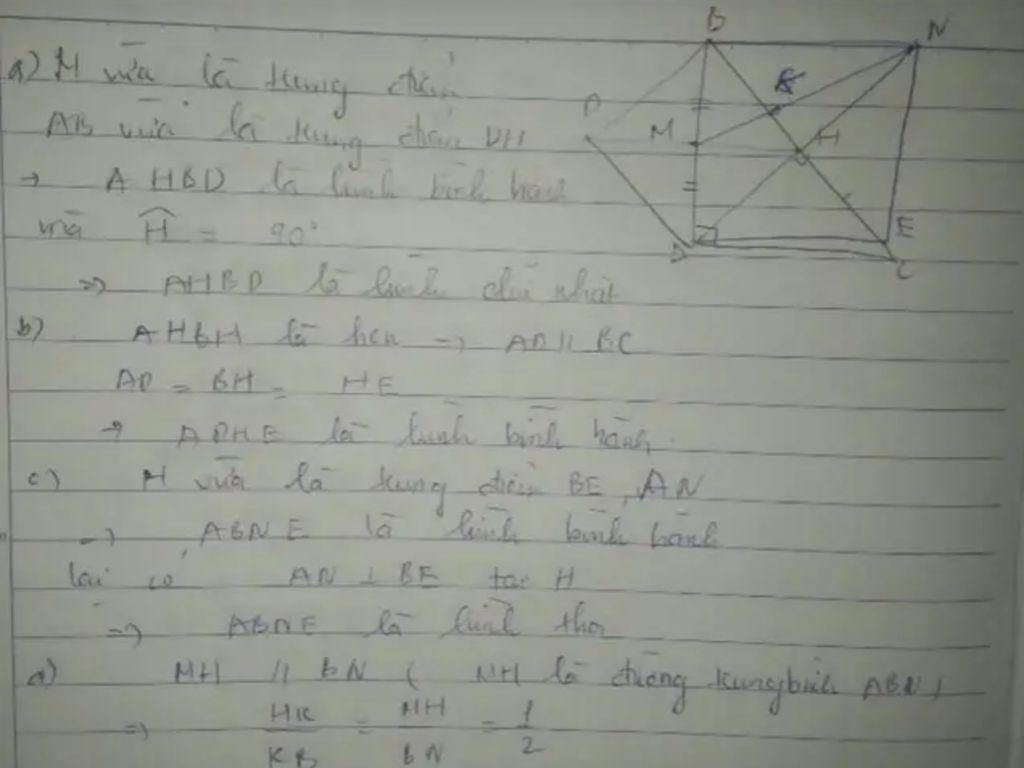 B N
a) M vừa là trung điểm
K
AB vừa là trung điểm DH
M H
→ AHBD là hình bình hành
E
mà Ĥ = 90°
D C
=> AHBD là hình chữ nhật
b) AHBH là hcn → AD // BC
AD = BH = HE
→ ADHE là hình bình hành.
c) H vừa là trung điểm BE, AN
→ ABNE là hình bình hành
lại có AN ⊥ BE tại H
=> ABNE là hình thoi
d) MH // BN ( MH là đường trung bình ABN )
=> HK/KB = MH/BN = 1/2